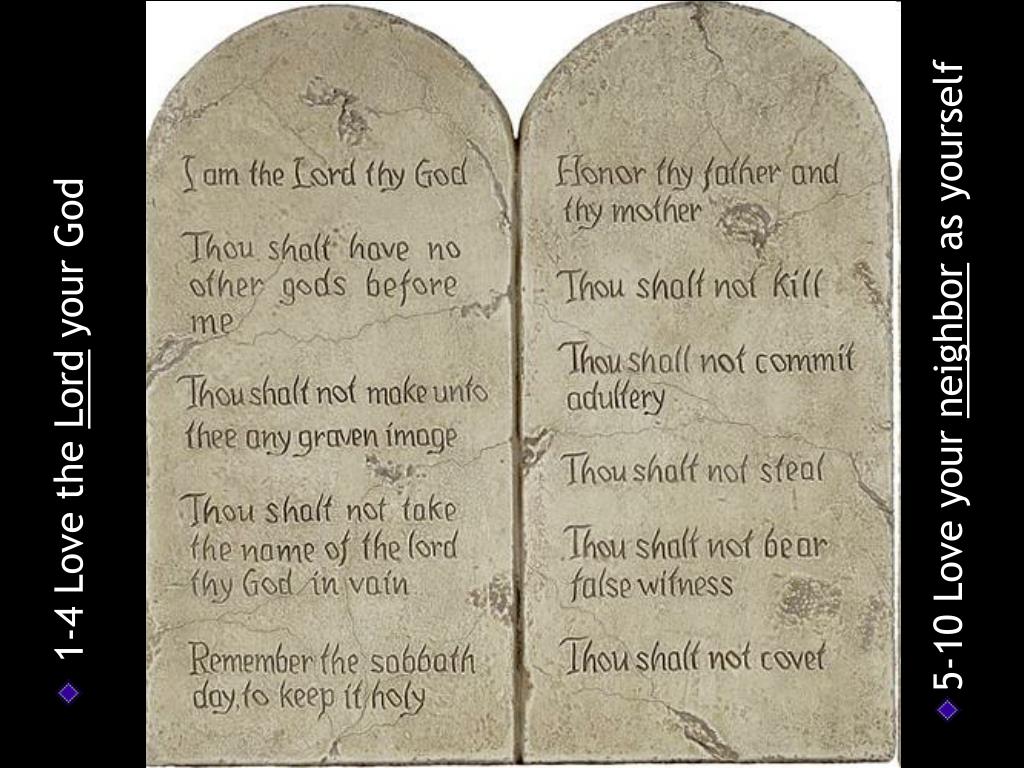 1-4 Love the Lord your God
I am the Lord thy God
Thou shalt have no
other gods before
me
Thou shalt not make unto
thee any graven image
Thou shalt not take
the name of the lord
thy God in vain
Remember the sabbath
day, to keep it holy
Honor thy father and
thy mother
Thou shalt not kill
Thou shall not commit
adultery
Thou shalt not steal
Thou shalt not bear
false witness
Thou shalt not covet
5-10 Love your neighbor as yourself